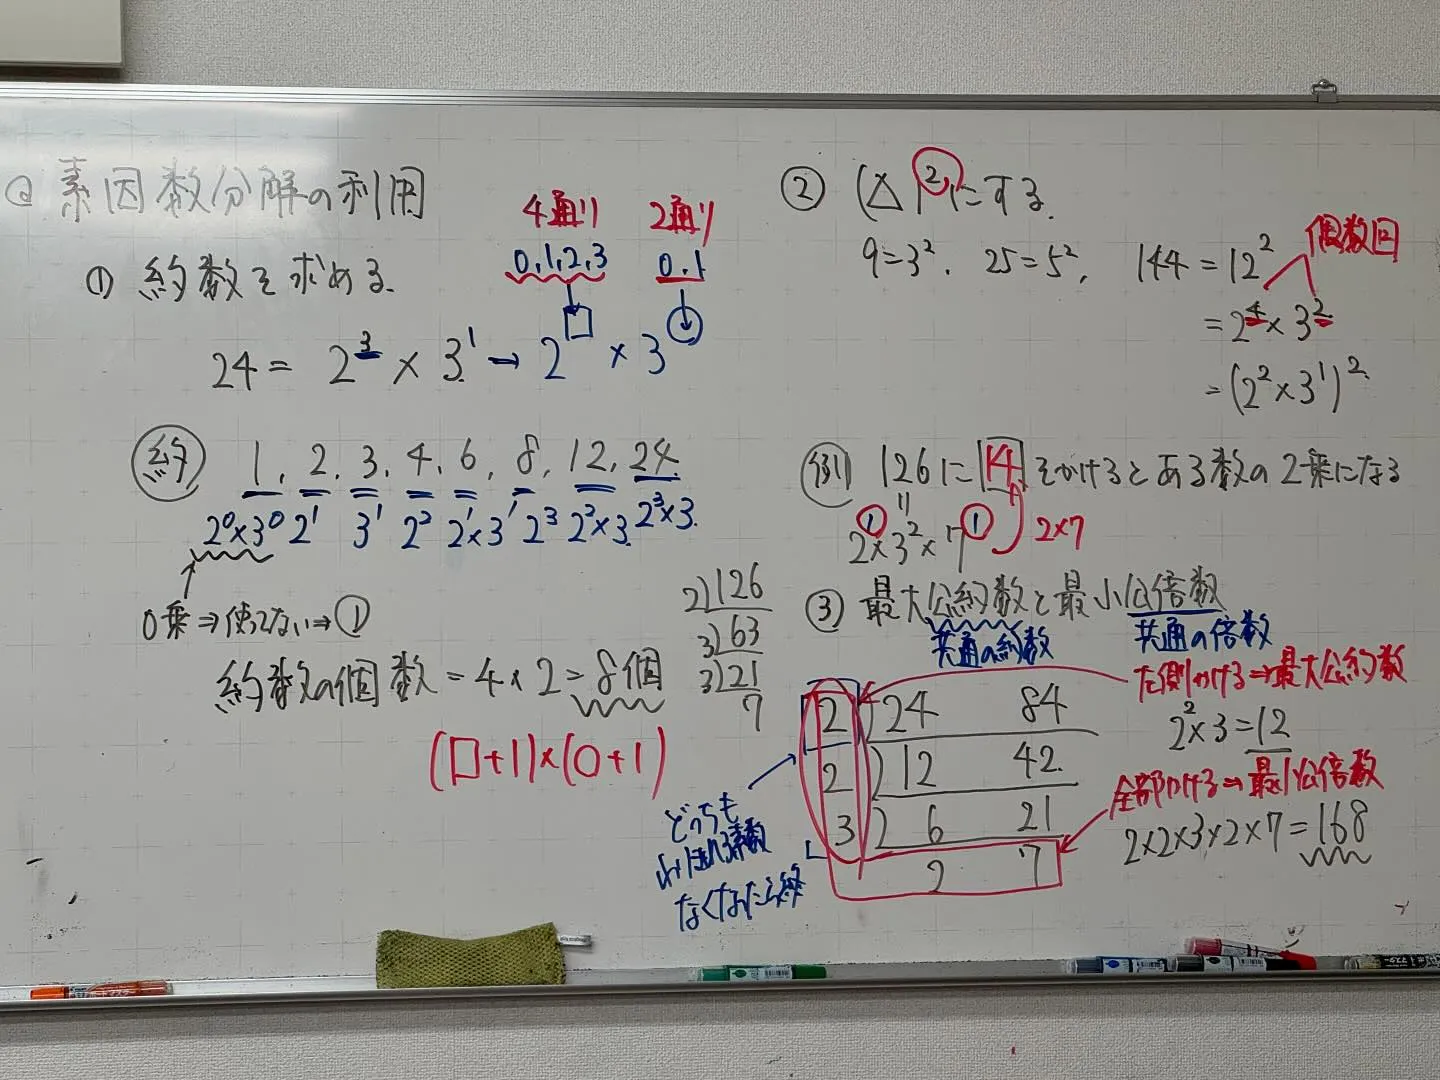 ◎ 素因数分解の利用
① 約数を求める.
4通り 2通り
0,1,2,3 0,1
24 = 2³ × 3¹ → 2^□ × 3^○
約 1, 2, 3, 4, 6, 8, 12, 24
2⁰×3⁰ 2¹ 3¹ 2² 2¹×3¹ 2³ 2²×3 2³×3
0乗⇒使ってない⇒①
約数の個数 = 4 × 2 = 8個
(□+1)×(○+1)
2)126
3)63
3)21
7
② (△)²にする.
9=3², 25=5², 144=12²
偶数回
= 2⁴×3²
= (2²×3¹)²
例 126に14をかけるとある数の2乗になる
2¹×3²×7¹ 2×7
③ 最大公約数と最小公倍数
共通の約数 共通の倍数
左側かける⇒最大公約数
2²×3=12
2)24 84
2)12 42
3)6 21
2 7
全部かける⇒最小公倍数
2×2×3×2×7=168
どっちも
わりきれる素数
なくなったら終